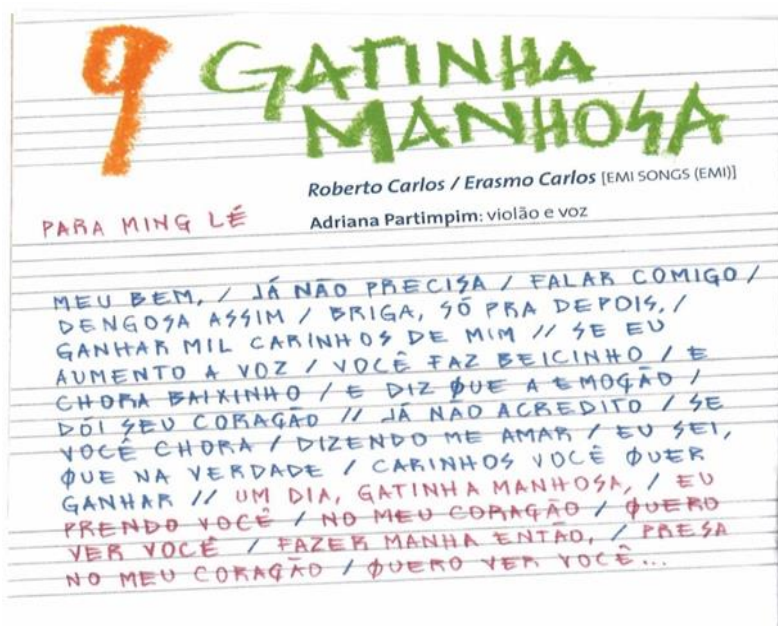 9 GATINHA
MANHOSA
Roberto Carlos / Erasmo Carlos [EMI SONGS (EMI)]
PARA MING LÉ
Adriana Partimpim: violão e voz
MEU BEM, / JÁ NÃO PRECISA / FALAR COMIGO /
DENGOSA ASSIM / BRIGA, SÓ PRA DEPOIS, /
GANHAR MIL CARINHOS DE MIM // SE EU
AUMENTO A VOZ / VOCÊ FAZ BEICINHO / E
CHORA BAIXINHO / E DIZ QUE A EMOÇÃO /
DÓI SEU CORAÇÃO // JÁ NÃO ACREDITO / SE
VOCÊ CHORA / DIZENDO ME AMAR / EU SEI,
QUE NA VERDADE / CARINHOS VOCÊ QUER
GANHAR // UM DIA, GATINHA MANHOSA, / EU
PRENDO VOCÊ / NO MEU CORAÇÃO / QUERO
VER VOCÊ / FAZER MANHA ENTÃO, / PRESA
NO MEU CORAÇÃO / QUERO VER VOCÊ...